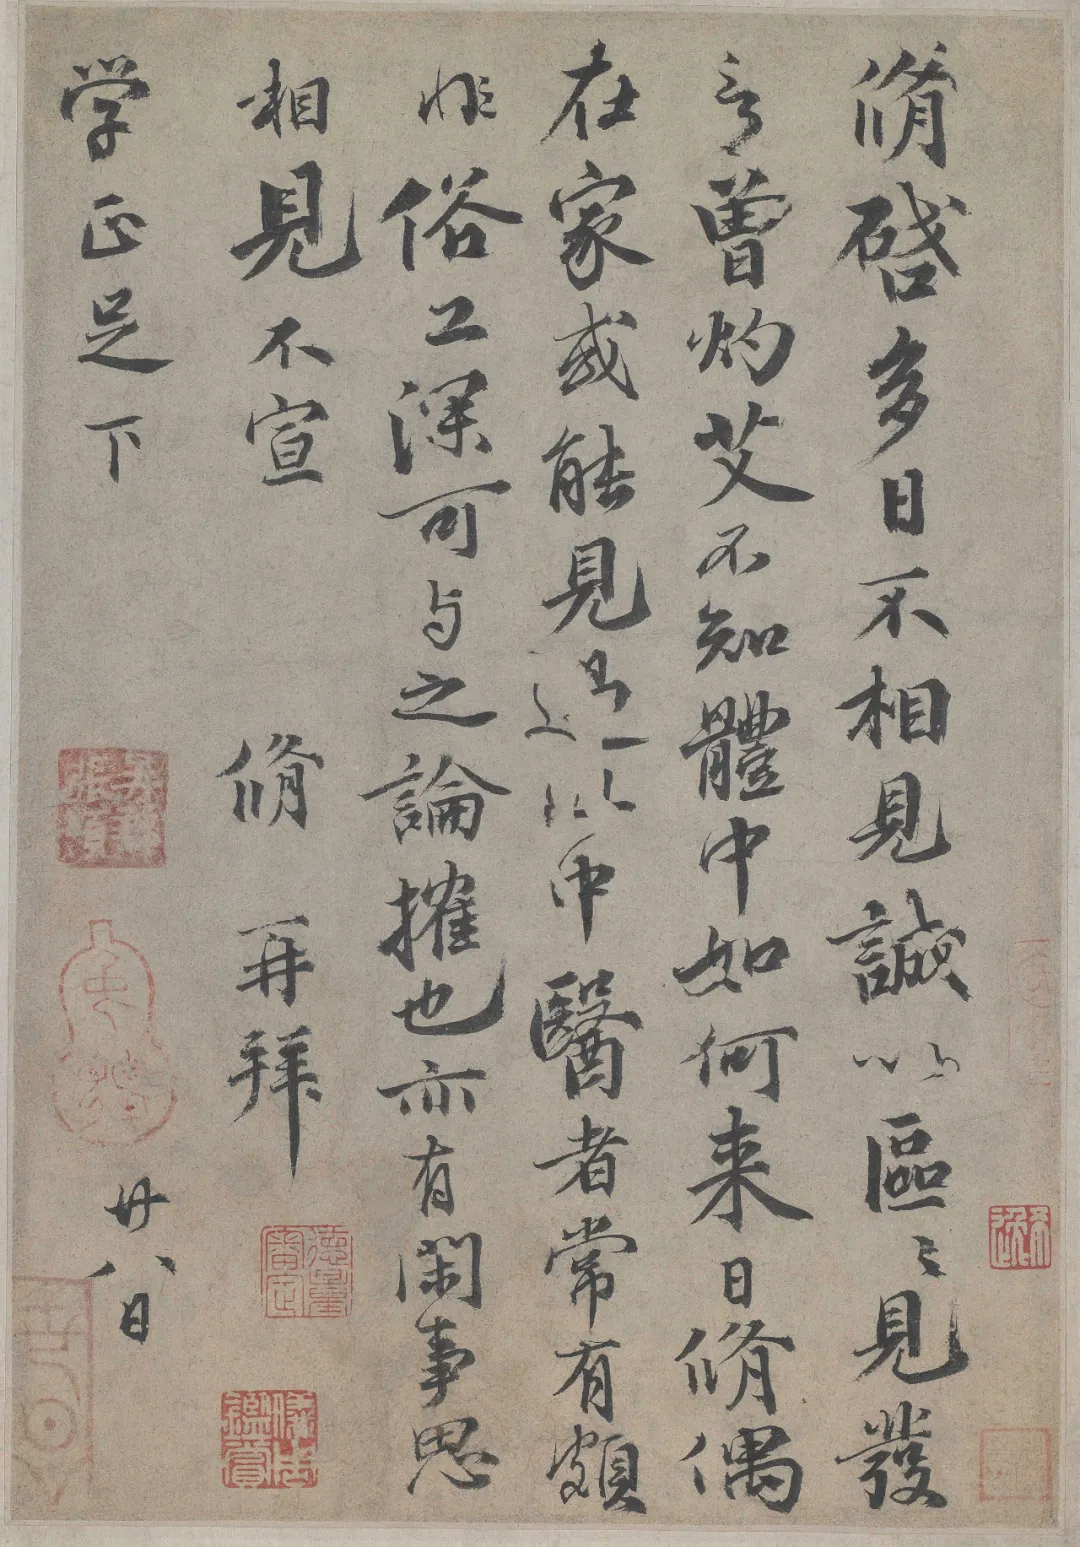 脩啓多日不相見誠以區〻見發
言曾灼艾不知體中如何来日脩偶
在家或能見過以中醫者常有頗
非俗工深可与之論搉也亦有閑事思
相見不宣
脩再拜
学正足下
廿八日